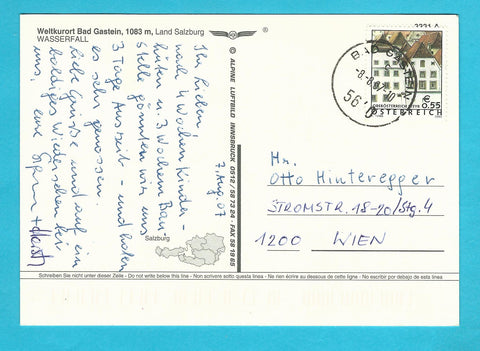 Weltkurort Bad Gastein, 1083 m, Land Salzburg
WASSERFALL
7. Aug. 07
Ihr Lieben,
nach 4 Wochen Kinder-
hüten u. 3 Wochen Bau-
stelle gönnten wir uns
3 Tage Auszeit - und haben
es sehr genossen.
Liebe Grüsse und auf ein
baldiges Wiedersehen bei
uns, eure
© ALPINE LUFTBILD INNSBRUCK 0512/58 73 24 · FAX 58 19 65
Salzburg
BAD GASTEIN
€ 0,55
ÖSTERREICH
Hn.
Otto Hinteregger
STROMSTR. 18-20/Stg. 4
1200 WIEN
Schreiben Sie nicht unter dieser Zeile - Do not write below this line - Non scrivere sotto questa linea - Ne rien écrire au dessous de cette ligne - No escribir por debajo de esta línea